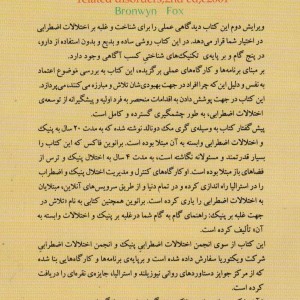 related disorders,2nd ed,2001
Bronwyn Fox
ویرایش دوم این کتاب دیدگاهی عملی را برای شناخت و غلبه بر اختلالات اضطرابی
در اختیار شما قرار می‌دهد. در این کتاب روشی ساده و بدیع و بدون استفاده از دارو،
در پنج گام و بر پایه‌ی تکنیک‌های شناختی کسب آگاهی وجود دارد.
بر مبنای برنامه‌ها و کارگاه‌های عملی برگزیده، این کتاب به بررسی موضوع اعتماد
به نفس و دلیل این که چرا افراد در جهت بهبودی‌شان تلاش و مبارزه می‌کنند، می‌پردازد.
این کتاب در جهت پوشش دادن به اقدامات منحصر به فرد اولیه و پیشگیرانه از توسعه‌ی
اختلالات اضطرابی، به طور چشمگیری گسترده و کامل است.
پیش گفتار کتاب به وسیله‌ی گری مک دونالد نوشته شده که به مدت ۲۰ سال به پنیک
و اختلالات اضطرابی وابسته به آن مبتلا بوده است. برانوین فاکس که این کتاب را
بسیار قدرتمند و مسئولانه نگاشته است، به مدت ۴ سال به اختلال پنیک و ترس از
فضاهای باز مبتلا بوده است. او کارگاه‌های کنترل و مدیریت اختلال پنیک و اضطراب
را در استرالیا راه اندازی کرده و در تمام دنیا و از طریق سرویس‌های آنلاین، مبتلایان به
اختلالات اضطرابی را یاری کرده است. برانوین همچنین کتابی به نام «تلاش در
جهت غلبه بر پنیک: راهنمای گام به گام شما در غلبه بر پنیک و اختلالات وابسته به
آن» تألیف کرده است.
این کتاب از سوی انجمن اختلالات اضطرابی پنیک و انجمن اختلالات اضطرابی
شرکت ویکتوریا سفارش داده شده است و برنامه‌ها و کارگاه‌هایی بنا شده
که از مرکز جوایز دستاوردهای روانی نیوزیلند و استرالیا، جایزه‌ی نقره‌ای را دریافت
کرده است.